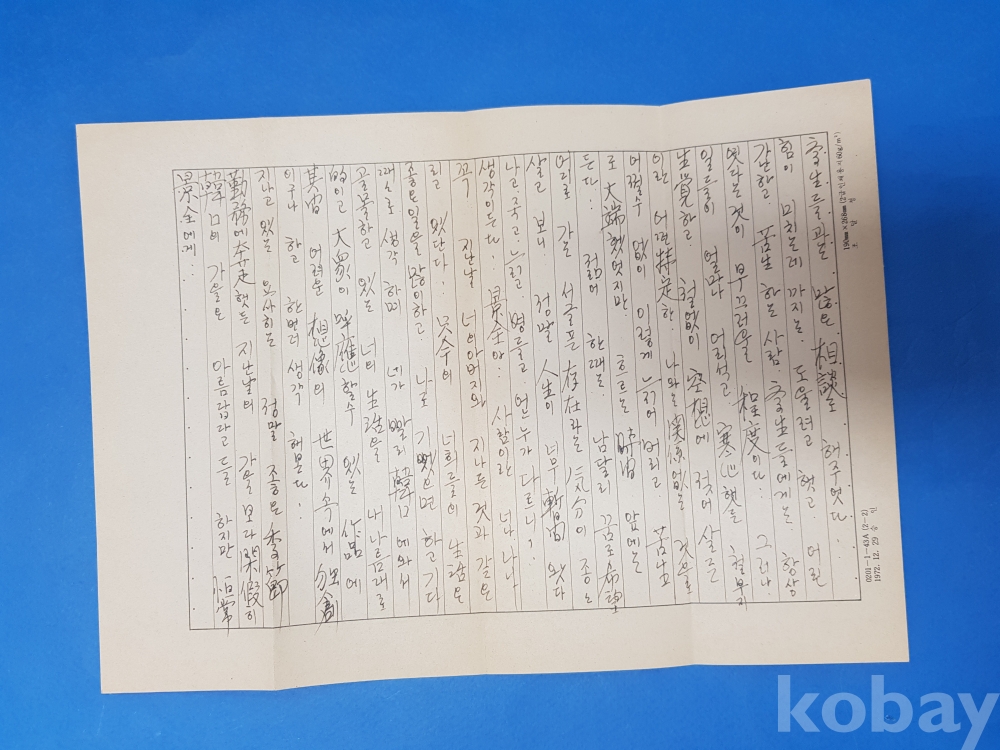 景全에게....
韓国의 가을은 아름답다고들 하지만 恒常
勤務에 奔走했든 지난날의 가을보다 閑暇히
지나고 있는 요사히는 정말 좋은 季節
이구나 하고 한번더 생각 해본다.
其間 어려운 想像의 世界속에서 独創
的이고 大衆이 呼應할수 있는 作品에
골몰하고 있는 너의 生活을 내 나름대로
때때로 생각하며 네가 빨리 韓国에 와서
좋은일을 많이하고 나도 기뻤으면 하고 기다
리고 있단다. 너희들의 生活은
꼭 지난날 너의아버지와 지나든 것과 같은
생각이든다. 景全아. 사람이란 너나 나나
나고. 죽고. 늙고. 병들고. 다르니
살고 보니 정말 人生이 너무 暫間 왔다
가는 서글픈 存在라는 気分이 종종
든다. 젊어 한때는 남달리 꿈도 希望
도 大端했엇지만 흐르는 時間 앞에는
어쩔수 없이 이렇게 늙어 버리고.
이란 어떤 特定한 나와는 関係없는 것으로
生覚하고 철없이 空想에 젖어 살든
일들이 얼마나 어리석고 寒心햇든 철부지
엿다는 것이 부끄러울 程度이다. 그러나
苦生하는 사람. 학생들에게는 항상
힘이 미치는데 까지는 도울려고 햇고. 어린
학생들과는 많은 相談도 해주엇다.
0201-1-43A (2-2)
1972. 12. 29 승인
190mm×268mm (2급인쇄용지60g/m²)
조달청
kobay